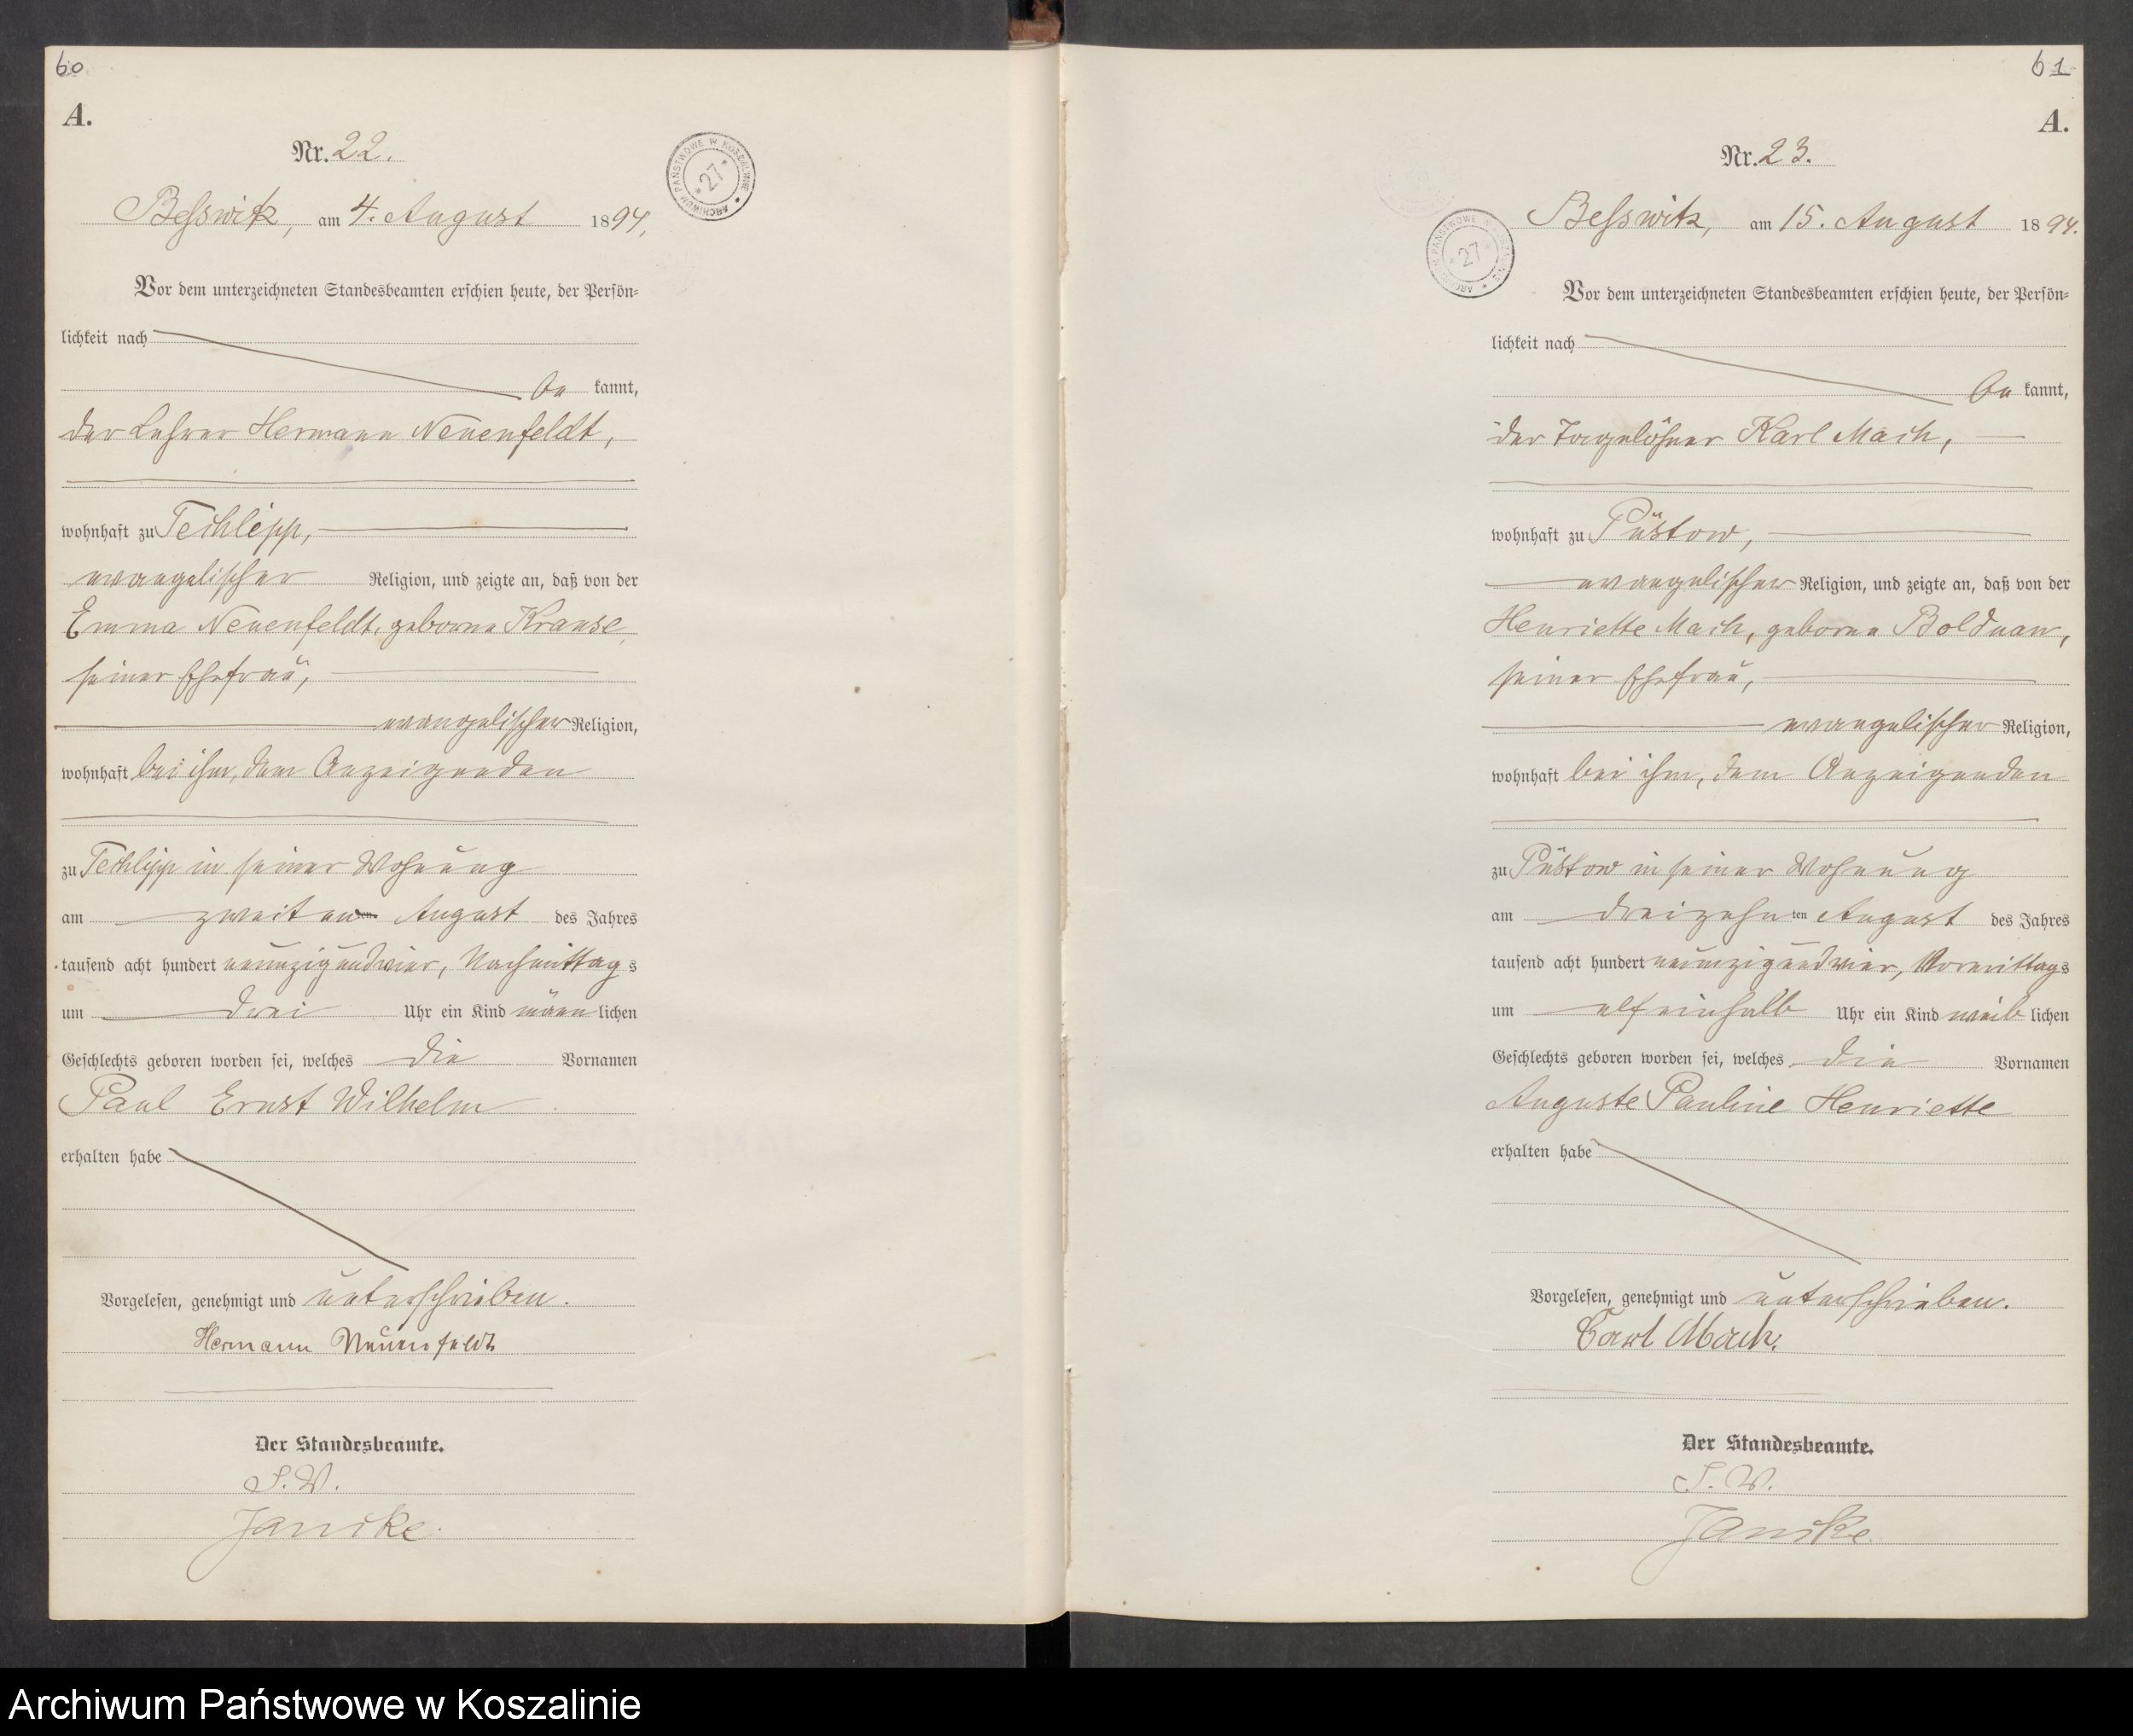 60
A.
Nr. 22.
Besswitz, am 4. August 1894.
ARCHIWUM PAŃSTWOWE W KOSZALINIE
* 27 *
Vor dem unterzeichneten Standesbeamten erschien heute, der Persön=
lichkeit nach
be kannt,
der Lehrer Hermann Neuenfeldt,
wohnhaft zu Techlipp,
evangelischer Religion, und zeigte an, daß von der
Emma Neuenfeldt, geborne Krause,
seiner Ehefrau,
evangelischer Religion,
wohnhaft bei ihm, dem Anzeigenden
zu Techlipp in seiner Wohnung
am zweiten August des Jahres
tausend acht hundert neunzigundvier, Nachmittag s
um drei Uhr ein Kind männ lichen
Geschlechts geboren worden sei, welches die Vornamen
Paul Ernst Wilhelm
erhalten habe
Vorgelesen, genehmigt und unterschrieben.
Hermann Neuenfeldt
Der Standesbeamte.
Janike.
61
A.
Nr. 23.
Besswitz, am 15. August 1894.
ARCHIWUM PAŃSTWOWE W KOSZALINIE
* 27 *
Vor dem unterzeichneten Standesbeamten erschien heute, der Persön=
lichkeit nach
be kannt,
der Tagelöhner Karl Mach,
wohnhaft zu Püstow,
evangelischer Religion, und zeigte an, daß von der
Henriette Mach, geborne Balduan,
seiner Ehefrau,
evangelischer Religion,
wohnhaft bei ihm, dem Anzeigenden
zu Püstow in seiner Wohnung
am dreizehn ten August des Jahres
tausend acht hundert neunzigundvier, Vormittags
um elfeinhalb Uhr ein Kind weib lichen
Geschlechts geboren worden sei, welches die Vornamen
Auguste Pauline Henriette
erhalten habe
Vorgelesen, genehmigt und unterschrieben.
Carl Mach.
Der Standesbeamte.
Janike.
Archiwum Państwowe w Koszalinie